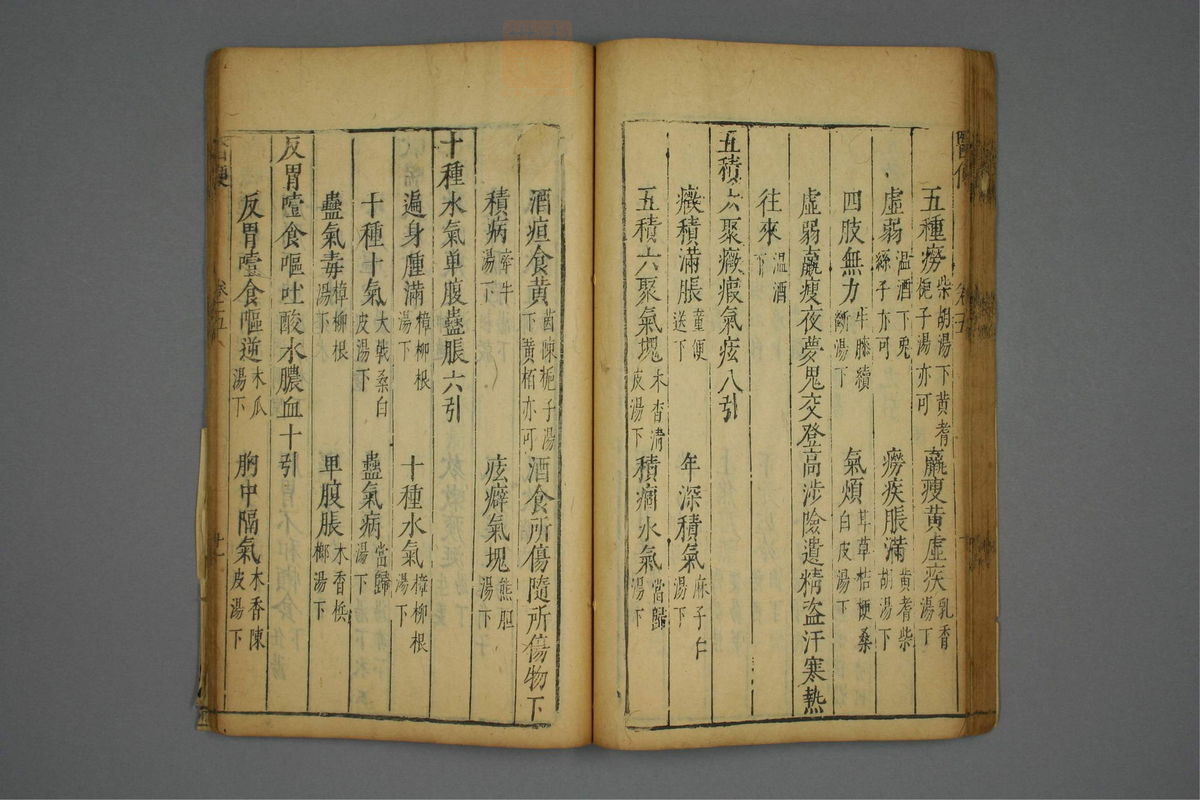 五種癆柴胡湯下黄耆梔子湯亦可 羸瘦黄虛疾乳香湯丁
虛弱温酒下兎絲子亦可 癆疾脹滿黄耆柴胡湯下
四肢無力牛膝續斷湯下 氣煩甘草桔梗桑白皮湯下
虛弱羸瘦夜夢鬼交登高涉險遺精盗汗寒熱
往來温酒下
五積六聚癥瘕氣痃八引
癥積滿脹童便送下 年深積氣麻子仁湯下
五積六聚氣塊木香清皮湯下 積痼水氣當歸湯下
酒疸食黄茵陳梔子湯下黄栢亦可 酒食所傷隨所傷物下
積病牽牛湯下 痃癖氣塊熊胆湯下
十種水氣单腹蠱脹六引
遍身腫滿樟柳根湯下 十種水氣樟柳根湯下
十種十氣大戟桑白皮湯下 蠱氣病當歸湯下
蠱氣毒樟柳根湯下 单腹脹木香梹榔湯下
反胃噎食嘔吐酸水膿血十引
反胃噎食嘔逆木瓜湯下 胸中隔氣木香陳皮湯下
卷五